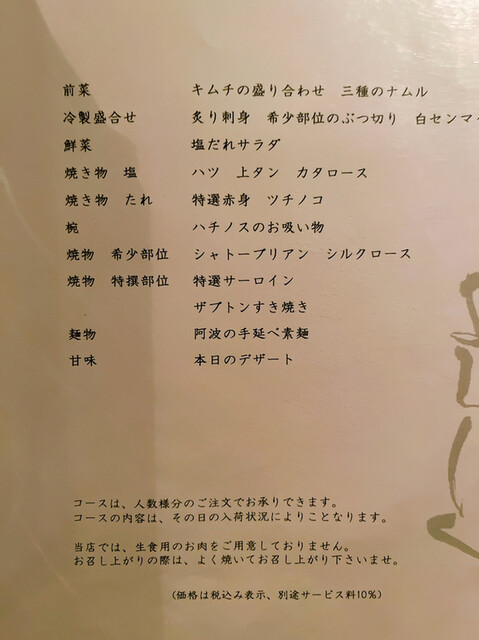 前菜　キムチの盛り合わせ　三種のナムル
冷製盛合せ　炙り刺身　希少部位のぶつ切り　白センマイ
鮮菜　塩だれサラダ
焼き物　塩　ハツ　上タン　カタロース
焼き物　たれ　特選赤身　ツチノコ
椀　ハチノスのお吸い物
焼物　希少部位　シャトーブリアン　シルクロース
焼物　特撰部位　特選サーロイン
ザブトンすき焼き
麺物　阿波の手延べ素麺
甘味　本日のデザート
コースは、人数様分のご注文でお承りできます。
コースの内容は、その日の入荷状況によりことなります。
当店では、生食用のお肉をご用意しておりません。
お召し上がりの際は、よく焼いてお召し上がり下さいませ。
（価格は税込み表示、別途サービス料10％）